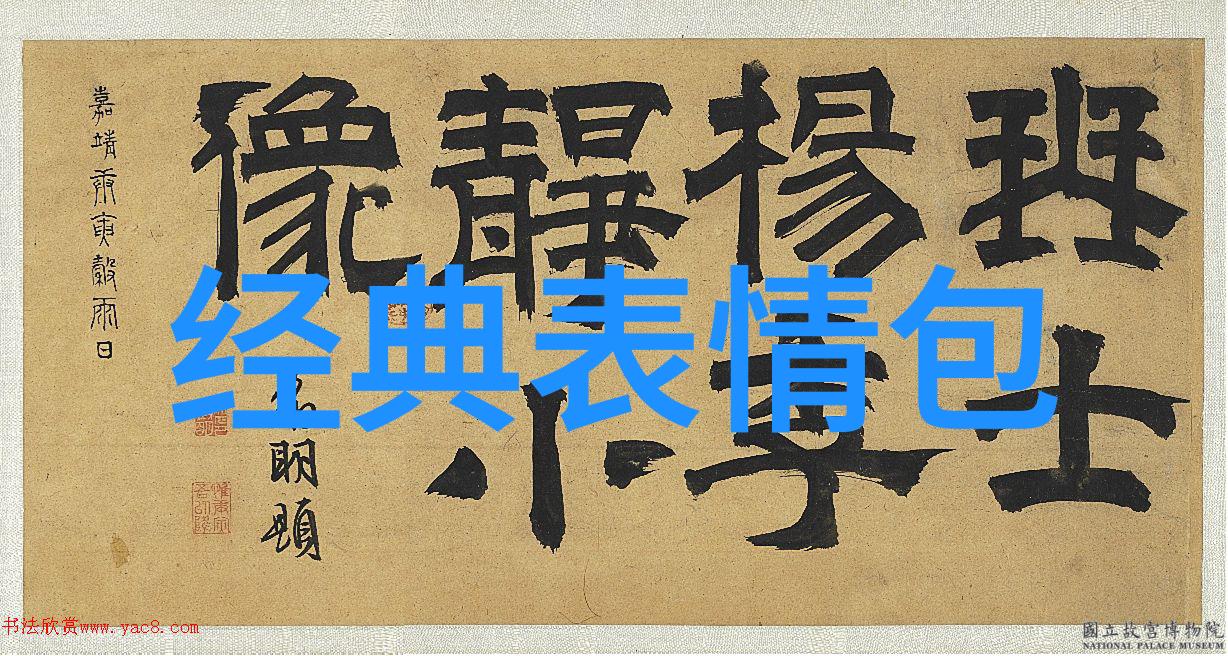 班士
楊
小
像
明題
嘉靖庚寅穀雨日
经典表情包
书法欣赏www.yac8.com
國立故宮博物院
NATIONAL PALACE MUSEUM